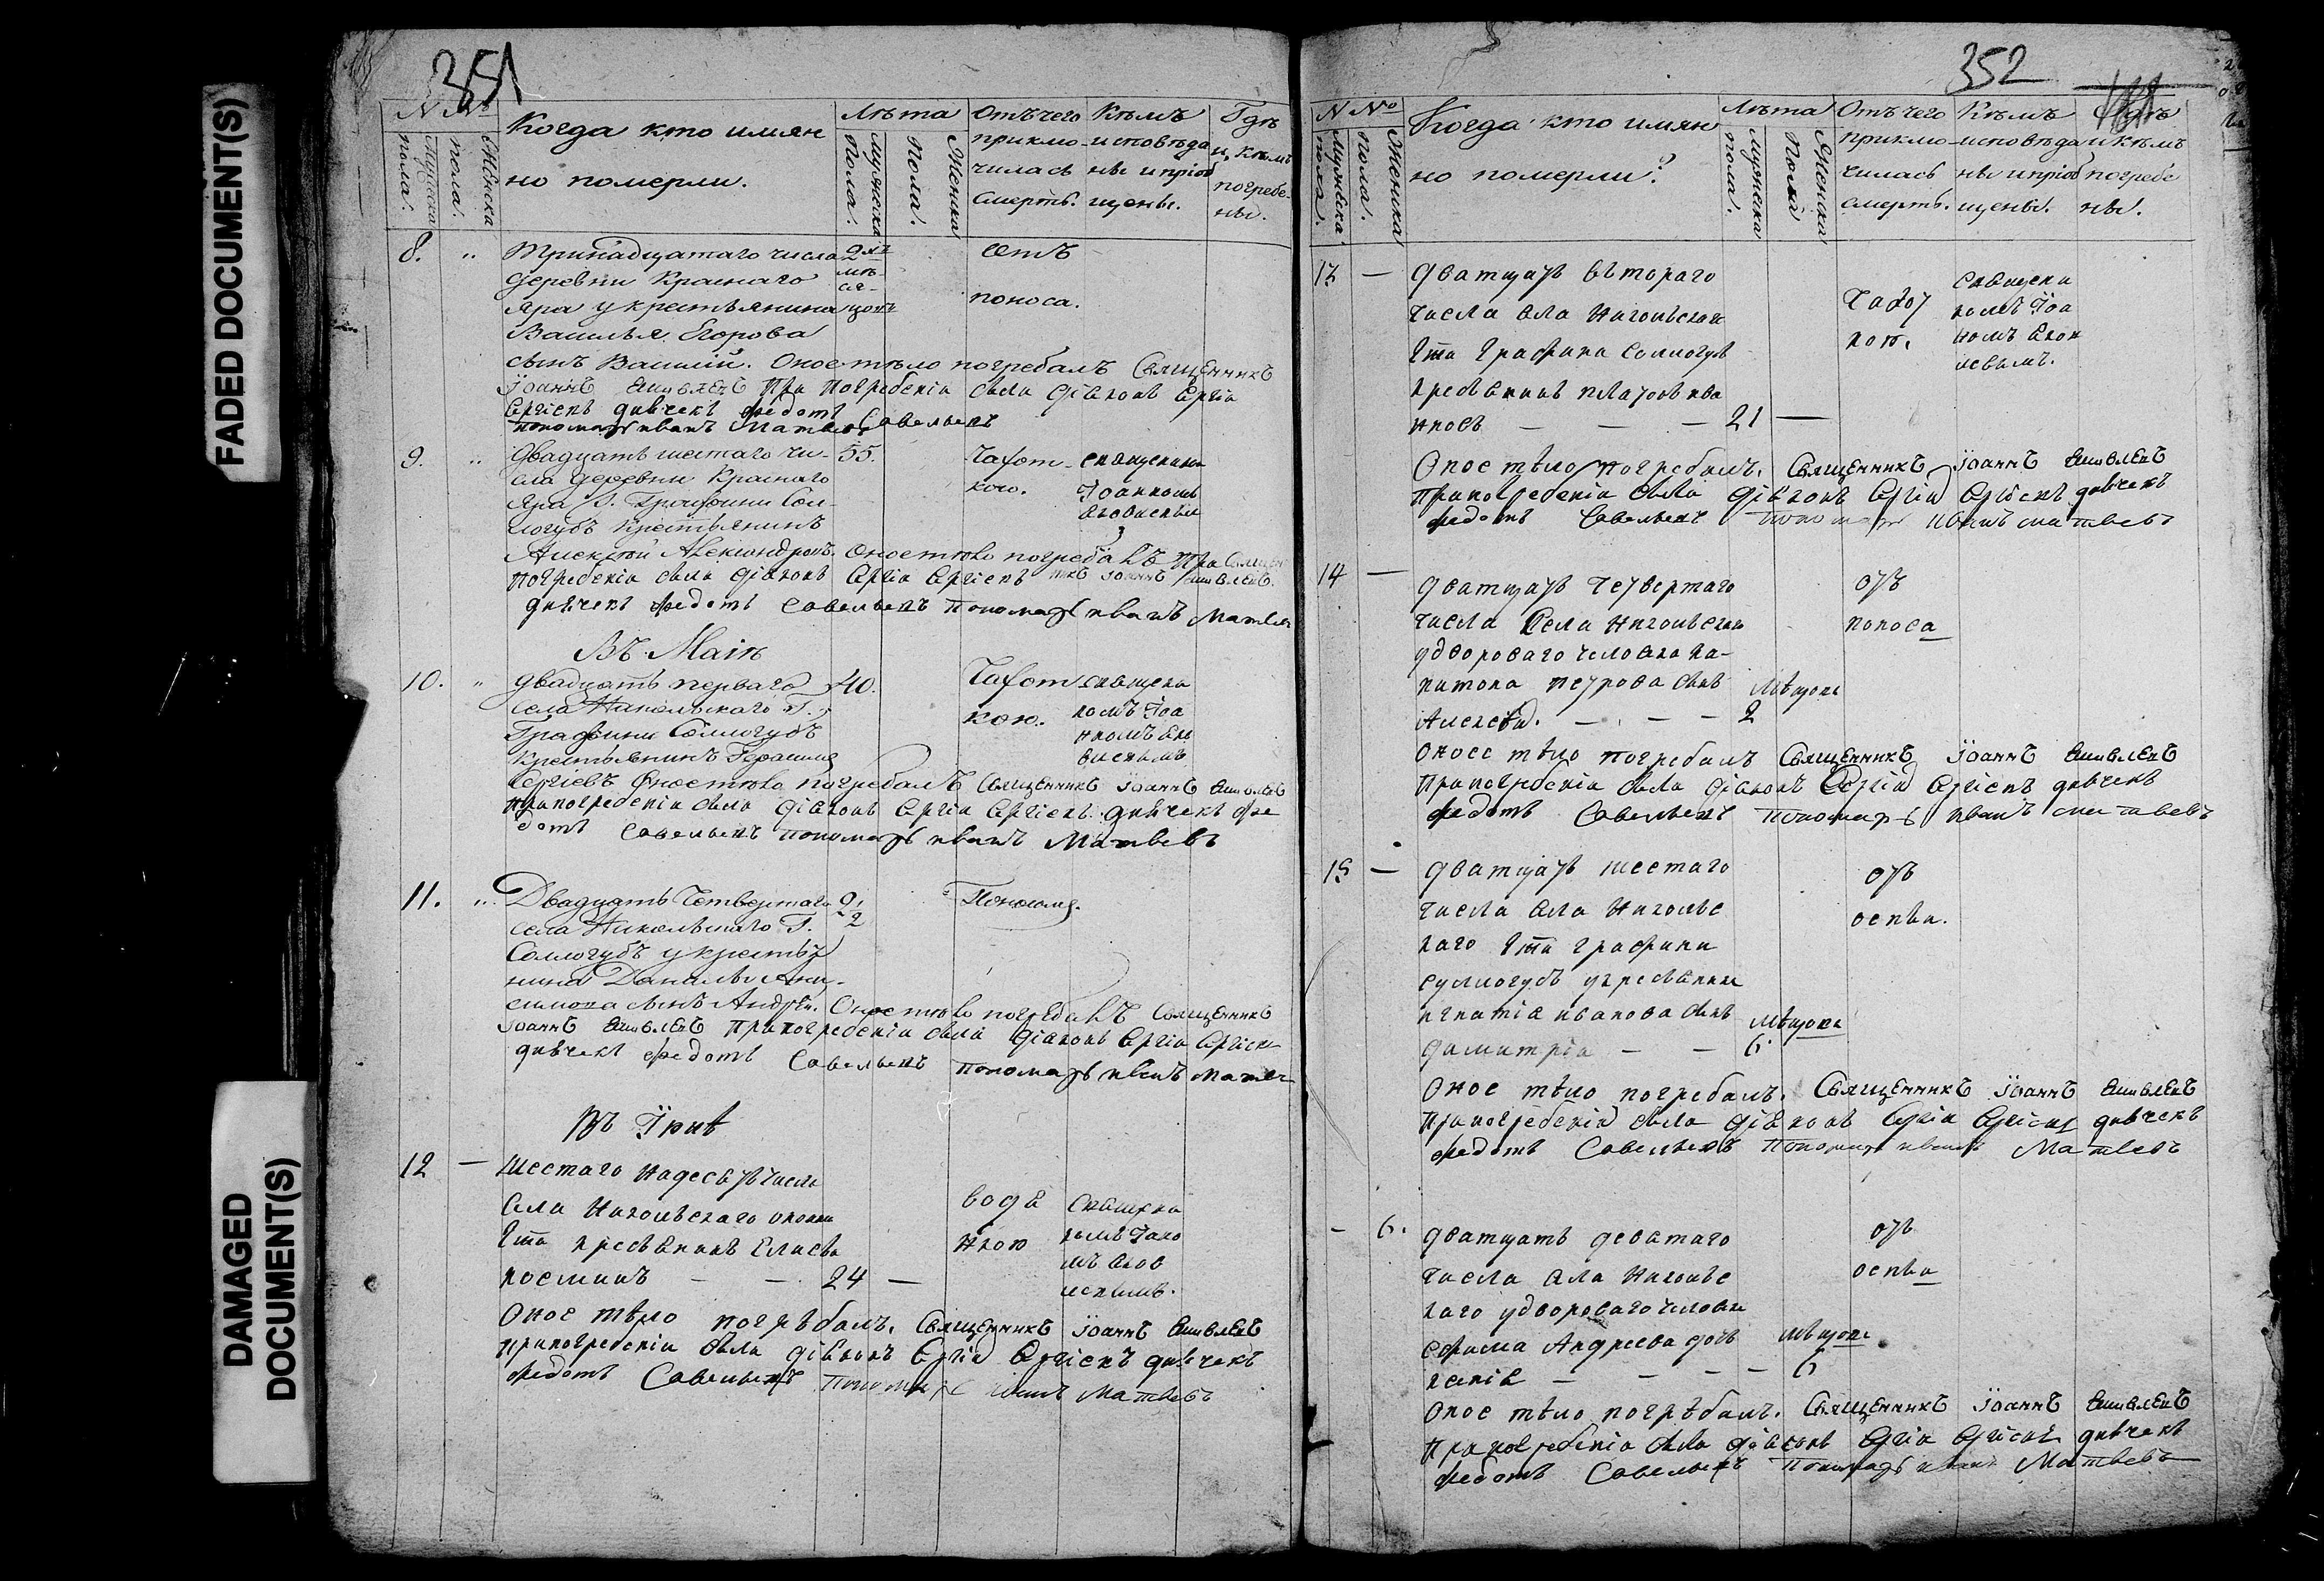 FADED DOCUMENT(S)
DAMAGED
DOCUMENT(S)
351
N №
Мужеска пола.
Женска пола.
Когда кто имян
но померли.
Лѣта
Мужеска Пола.
Женска Пола.
Отъ чего
приклю-
чилась
смерть.
Кѣмъ
исповѣда
ны и пріоб
щены.
Гдѣ
и кѣмъ
погребе-
ны.
8.
Тринадцатаго числа
деревни Краснаго
Яра у крестьянина
Василья Егорова
сынъ Василій. Оное тѣло погребалъ Священникъ
Іоаннъ Яковлевъ При погребеніи были діаконъ Сергіи
Сергіевъ дьячекъ Федотъ Савельевъ
пономарь Иванъ Матвевъ
2
мѣ-
ся-
цовъ
отъ
поноса.
9.
Двадцать шестаго чи-
сла деревни Краснаго
Яра Г. Графини Сол-
логубъ Крестьянинъ
Алексѣй Александровъ. Оное тѣло погребалъ Священ
При погребеніи были діаконъ Сергіи Сергіевъ никъ Іоаннъ Яковлевъ.
дьячекъ Федотъ Савельевъ Пономарь Иванъ Матвев
55.
Чахот-
кою.
священико
Іоанномъ
Яковлевым
Въ Маіѣ
10.
двадцать перваго
села Никольскаго Г.
Графини Соллогубъ
Крестьянинъ Герасимъ
Сергіевъ Оное тѣло погребалъ Священникъ Іоаннъ Яковлевъ
При погребеніи были діаконъ Сергіи Сергіевъ дьячекъ Фе
дотъ Савельевъ пономарь Иванъ Матвевъ
40.
Чахот
кою.
священи
комъ Іоа
нномъ Яко
влевымъ
11.
Двадцать Четвертаго
села Никольскаго Г.
Соллогубъ у крестья
нина Данилы Они-
симова сынъ Андрей. Оное тѣло погребалъ Священникъ
Іоаннъ Яковлевъ При погребеніи были діаконъ Сергіи Сергіев
дьячекъ Федотъ Савельевъ пономарь Иванъ Матвев
Поносомъ.
Въ Іюнѣ
12
Шестаго надесять числа
села Никольскаго
Гжи кресьянинъ Елисѣи
Косминъ — — 24 —
Оное тѣло погрѣбалъ. Священникъ Іоаннъ Яковлевъ
При погребеніи были діаконъ Сергіи Сергіевъ дьячекъ
Федотъ Савельевъ пономарь Иванъ Матвевъ
водя
ною
Священи
комъ Іоано
мъ Яков
левымъ.
352
N №
Мужеска пола.
Женска пола.
Когда кто имян
но померли?
Лѣта
Мужеска пола.
Женска Пола
Отъ чего
приклю-
чилась
смерть.
Кѣмъ
исповѣда
ны и пріоб
щены.
Гдѣ
и кѣмъ
погребе
ны.
13
Дватцать втораго
числа села Никольскаго
Гжи Графини Соллогубъ
кресьянинъ Платонъ Ива
новъ — — — 21 —
Чахот
кою.
Священи
комъ Іоа
номъ Яков
левымъ.
Оное тѣло погребалъ. Священникъ Іоаннъ Яковлевъ
При погребеніи были діаконъ Сергіи Сергіевъ дьячекъ
Федотъ Савельевъ Пономарь Иванъ Матвевъ
14
Дватцать четвертаго
числа Села Никольскаго
у двороваго человека Ка-
питона Петрова сынъ
Алексѣи. — — — 2
мѣсяца
отъ
поноса
Оное тѣло погребалъ Священникъ Іоаннъ Яковлевъ
При погребеніи были діаконъ Сергіи Сергіевъ дьячекъ
Федотъ Савельевъ Пономарь Иванъ Матвевъ
15
Дватцать шестаго
числа села Николье
каго Гжи Графини
Сулогубъ у кресьянина
Игнатія Иванова сынъ
Димитріи — — 6
мѣсяцовъ
отъ
оспы.
Оное тѣло погребалъ. Священникъ Іоаннъ Яковлевъ
При погребеніи были діаконъ Сергіи Сергіевъ дьячекъ
Федотъ Савельевъ Пономарь Иванъ Матвевъ
— 6.
Дватцать девятаго
числа села Николье
каго у двороваго человека
Ефима Андреева дочь
— — — 6
мѣсяцовъ
отъ
оспы
Оное тѣло погрѣбалъ. Священникъ Іоаннъ Яковлевъ
При погребеніи были діаконъ Сергіи Сергіевъ дьячекъ
Федотъ Савельевъ Пономарь Иванъ Матвевъ